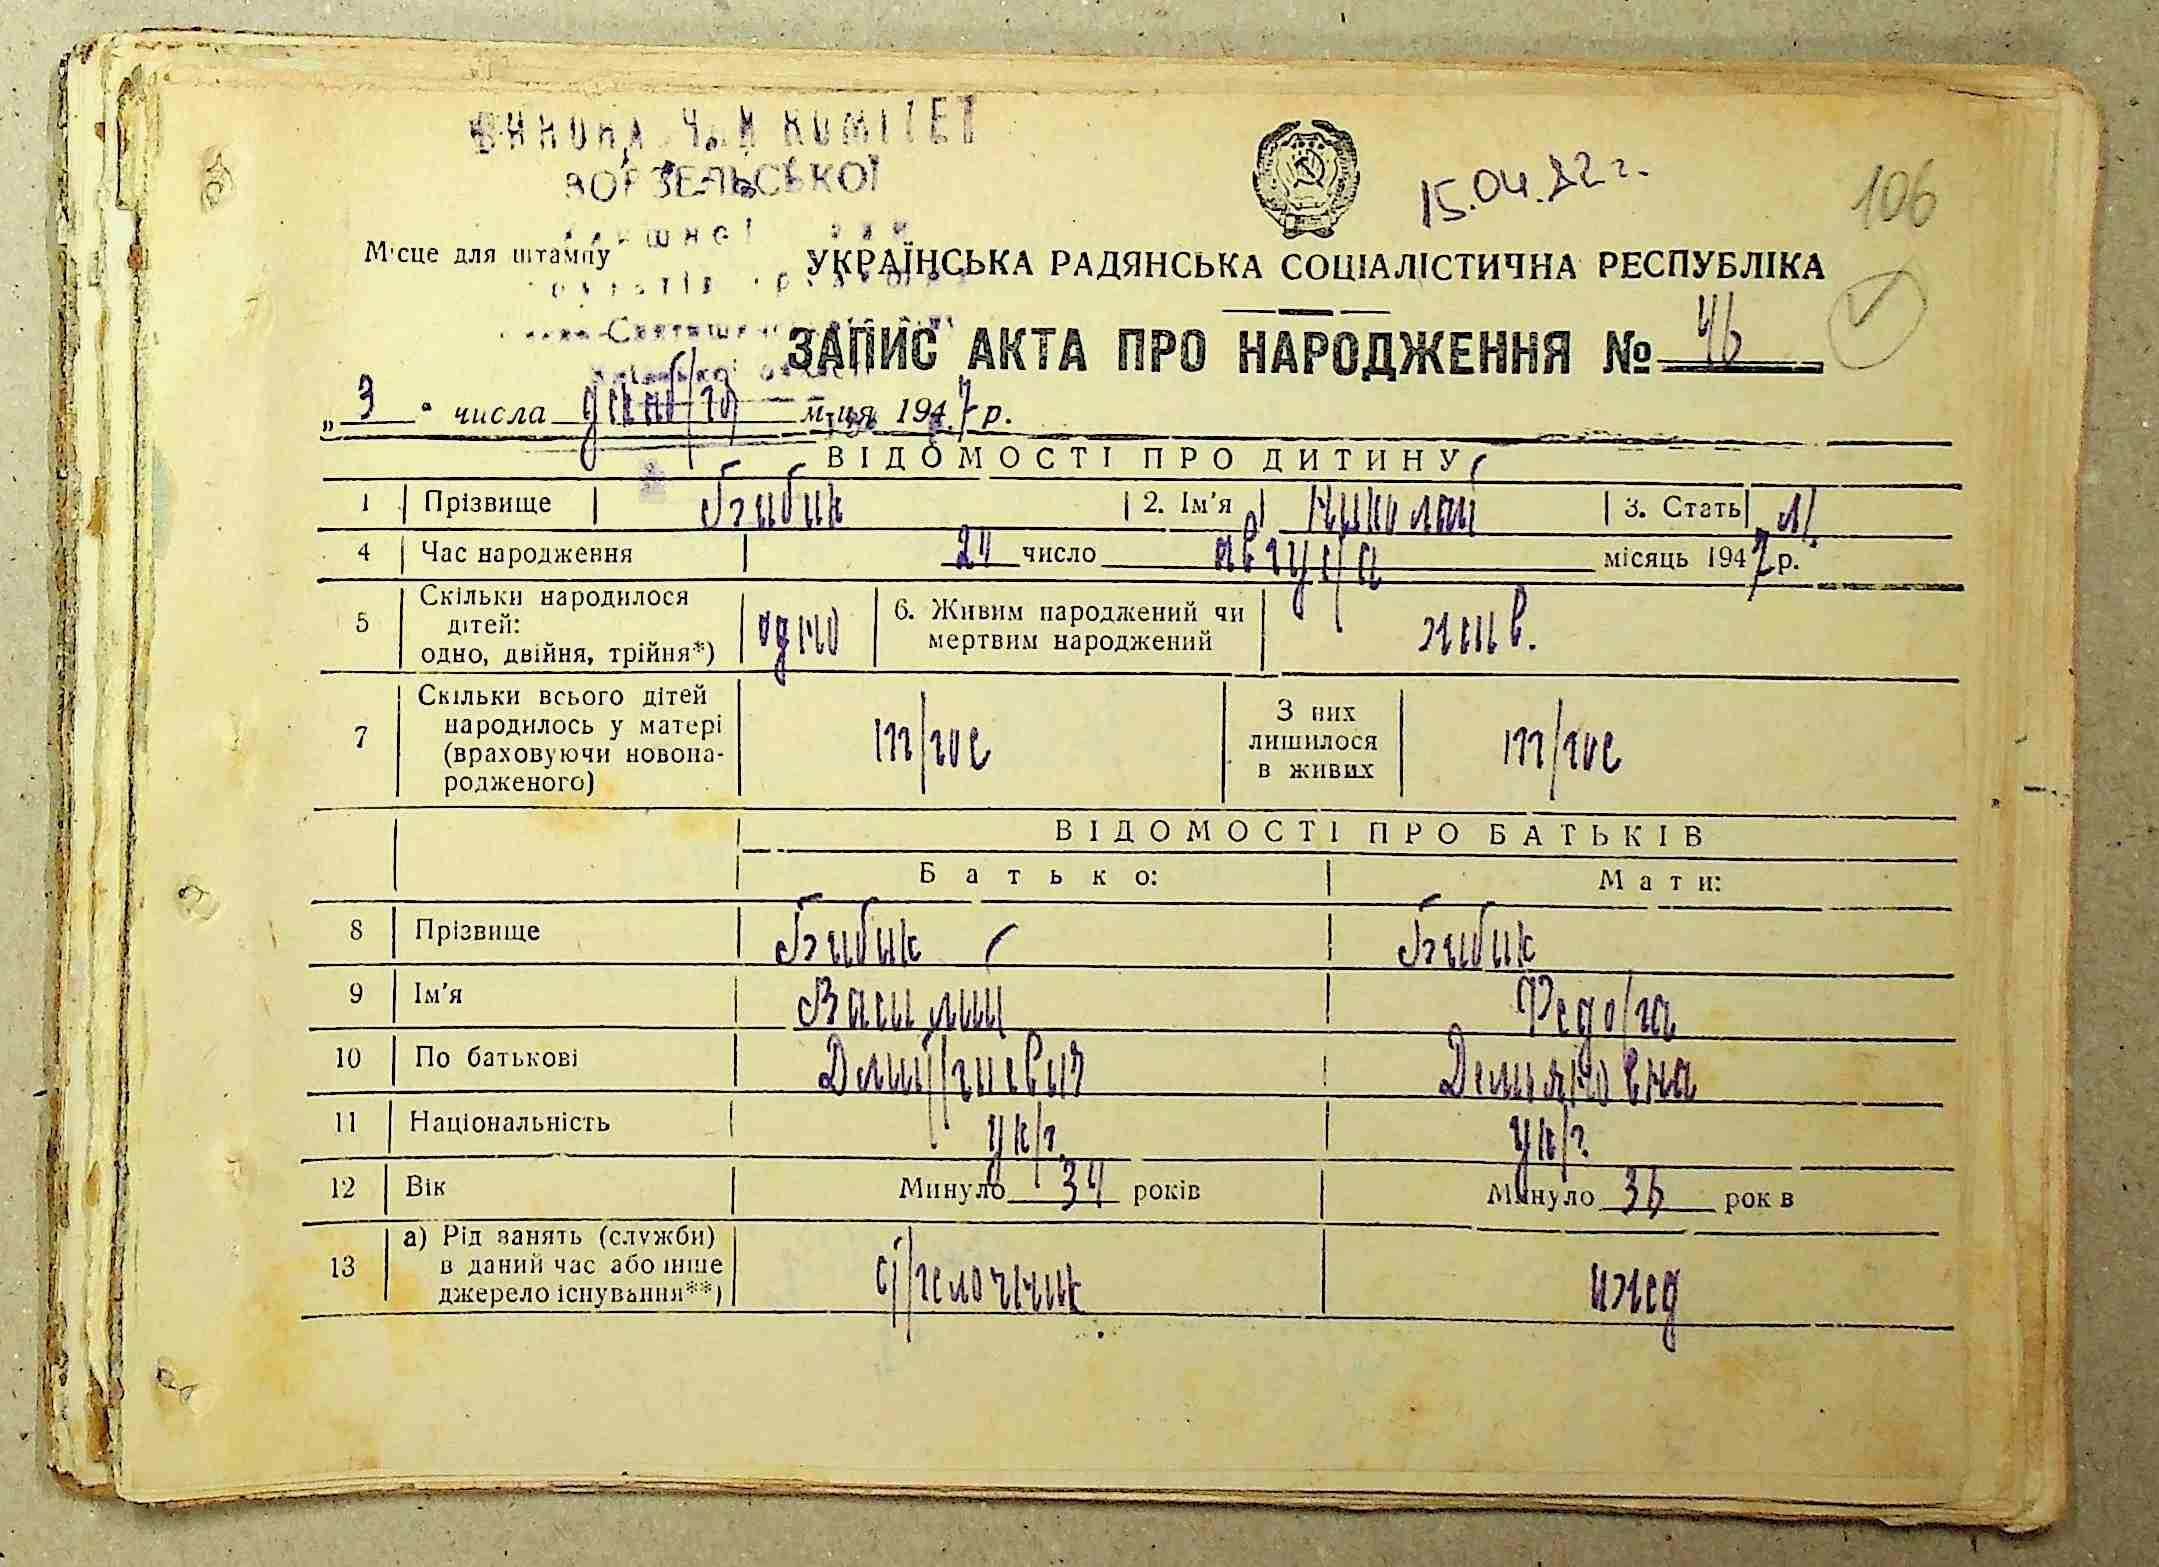 ВИКОНАВЧИЙ КОМІТЕТ
ВОРЗЕЛЬСЬКОЇ
15.04.82 г.
106
Місце для штампу
УКРАЇНСЬКА РАДЯНСЬКА СОЦІАЛІСТИЧНА РЕСПУБЛІКА
ЗАПИС АКТА ПРО НАРОДЖЕННЯ № 46
„ 3 " числа декабря м-ця 1947 р.
ВІДОМОСТІ ПРО ДИТИНУ
1 Прізвище 2. Ім'я Николай 3. Стать М.
4 Час народження 24 число августа місяць 1947 р.
5 Скільки народилося дітей: одно, двійня, трійня*) одно 6. Живим народжений чи мертвим народжений жив.
7 Скільки всього дітей народилось у матері (враховуючи новонародженого) трое З них лишилося в живих трое
ВІДОМОСТІ ПРО БАТЬКІВ
Батько: Мати:
8 Прізвище
9 Ім'я Василий Федора
10 По батькові Дмитриевич Демьяновна
11 Національність укр. укр.
12 Вік Минуло 34 років Минуло 36 років
13 а) Рід занять (служби) в даний час або інше джерело існування**) стрелочник ижед